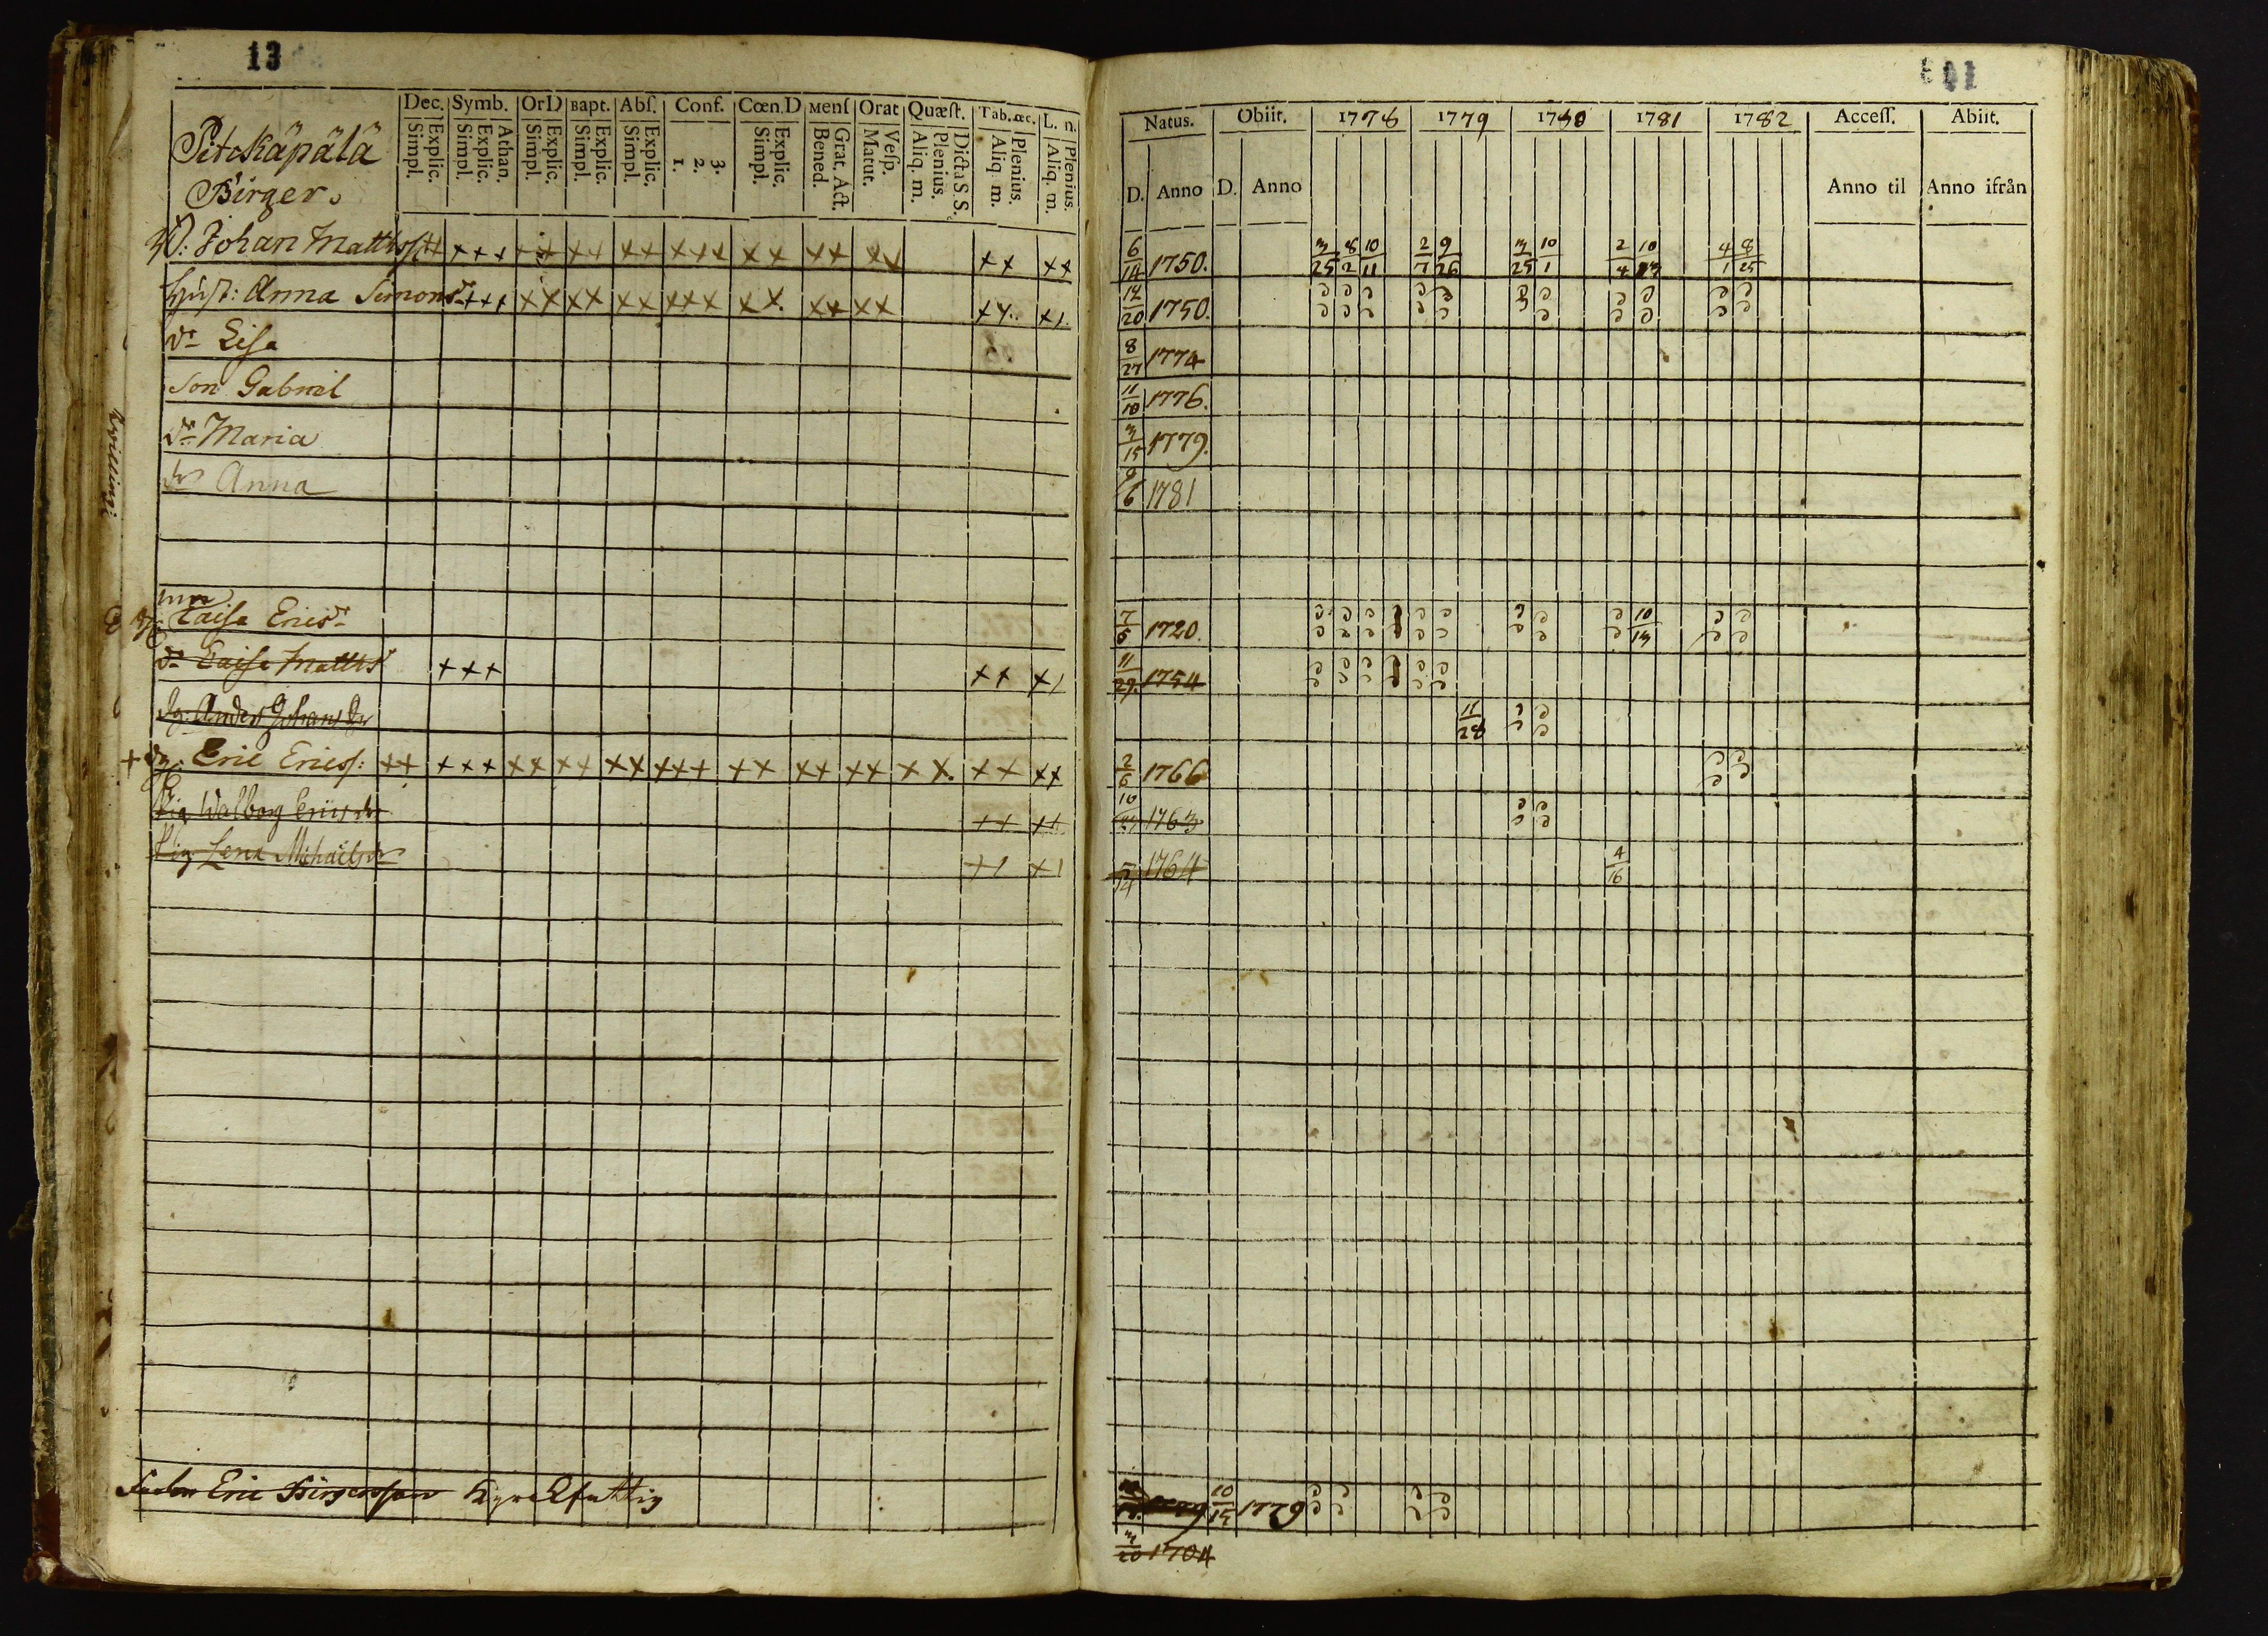 13
Dec. Symb. OrD Bapt. Abſ. Conf. Cœn.D Menſ Orat Quæſt. Tab.œc. L. n.
Explic. Simpl. Athan. Explic. Simpl. Explic. Simpl. Explic. Simpl. Explic. Simpl. 3. 2. 1. Explic. Simpl. Grat. Act. Bened. Veſp. Matut. Dicta S.S. Plenius. Aliq. m. Plenius. Aliq. m. Plenius. Aliq. m.
Pitckäpälä
Birger.
Johan Matthsſ ++ +++ ++ ++ ++ +++ ++ ++ ++ ++ ++
Huſt: Anna Simonsdr +++ ++ ++ ++ +++ ++. ++ ++ ++.. +1.
dr Liſa
Son Gabriel
dr Maria
dr Anna
Caiſa Ericsdr
dr Caiſa Matthsdr +++ ++ +1
Anders Johans
+ dg. Eric Ericsſ: ++ +++ ++ ++ ++ +++ ++ ++ ++ ++. ++ ++
Pig Walborg Ericsdr ++ ++
Pig Lena Michaelsdr +1 +1
Eric Birgersson
Natus. Obiit. 1778 1779 1780 1781 1782 Acceſſ. Abiit.
D. Anno D. Anno Anno til Anno ifrån
6/14 1750. 3/25 8/2 10/11 2/7 9/26 3/25 10/1 2/4 10 4/1 8/25
1750.
8/27 1774
11/10 1776.
3/15 1779.
9/6 1781
7/6 1720. 10/14
11/29. 1754
11/28
2/6 1766
10 1763
1764 4/16
10/15 1779
3/20 1704